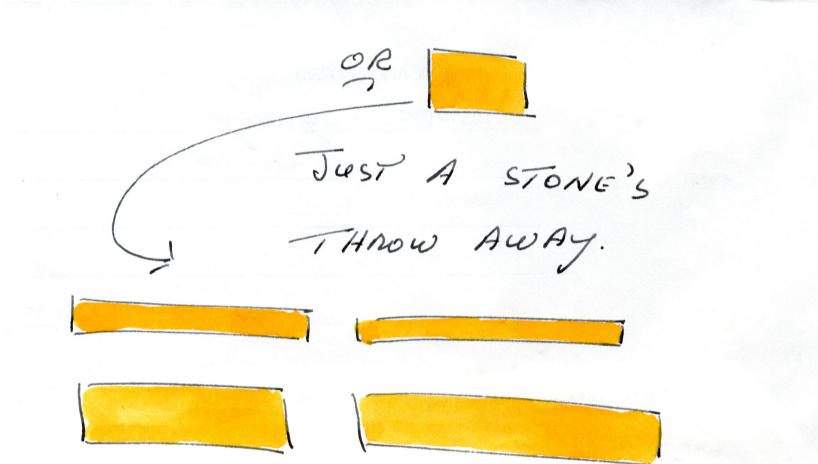 OR
JUST A STONE'S
THROW AWAY.